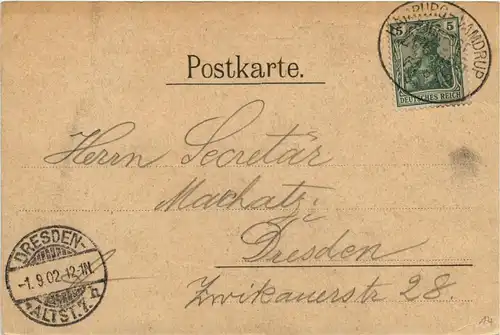 5 5
DEUTSCHES REICH
Postkarte.
Herrn Secretär
Machatz
Dresden
Zwikauerstr 28.
DRESDEN-
-1.9.02.12-1N.
ALTST.7.
14